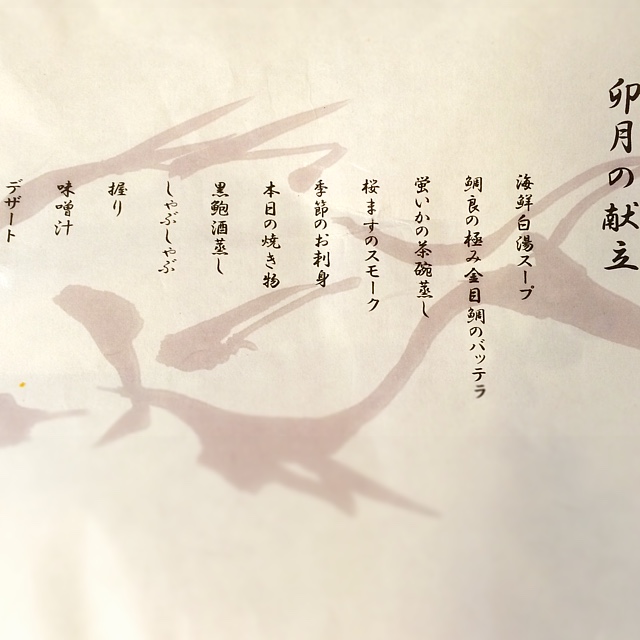 卯月の献立
海鮮白湯スープ
鯛良の極み金目鯛のバッテラ
蛍いかの茶碗蒸し
桜ますのスモーク
季節のお刺身
本日の焼き物
黒鮑酒蒸し
しゃぶしゃぶ
握り
味噌汁
デザート